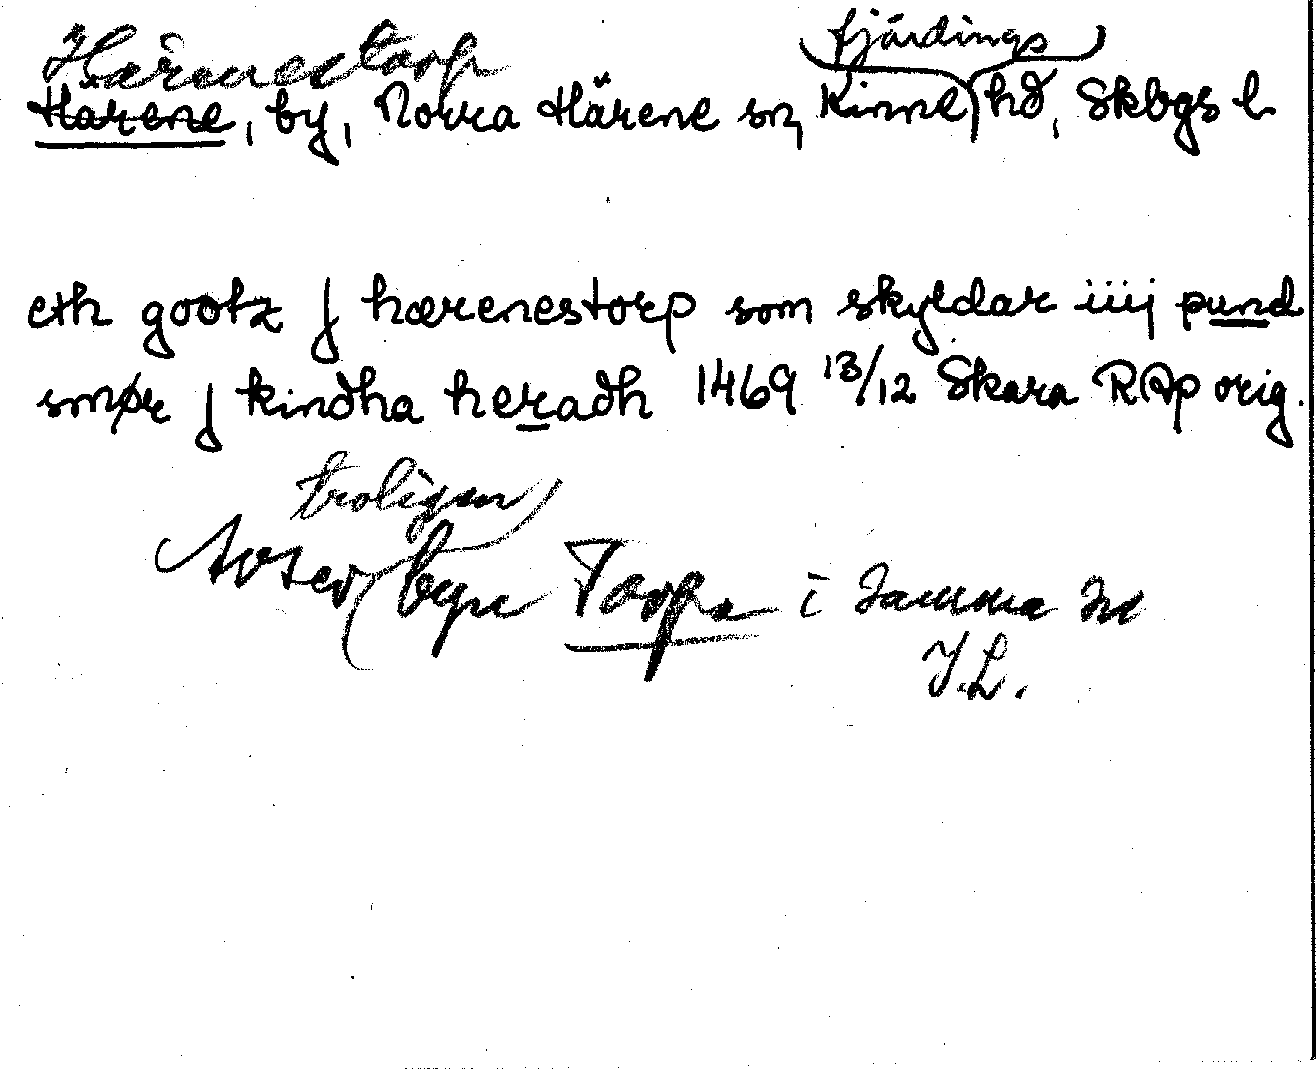 Härnestorp
fjärdings
Härene, by, Norra Härene sn, Kinne hd, Skbgs l.
eth gootz j hærenestorp som skyldar iiij pund
smør j kindha heradh 1469 13/12 Skara RAp orig.
troligen
Avser byn Torpa i samma sn
J.L.